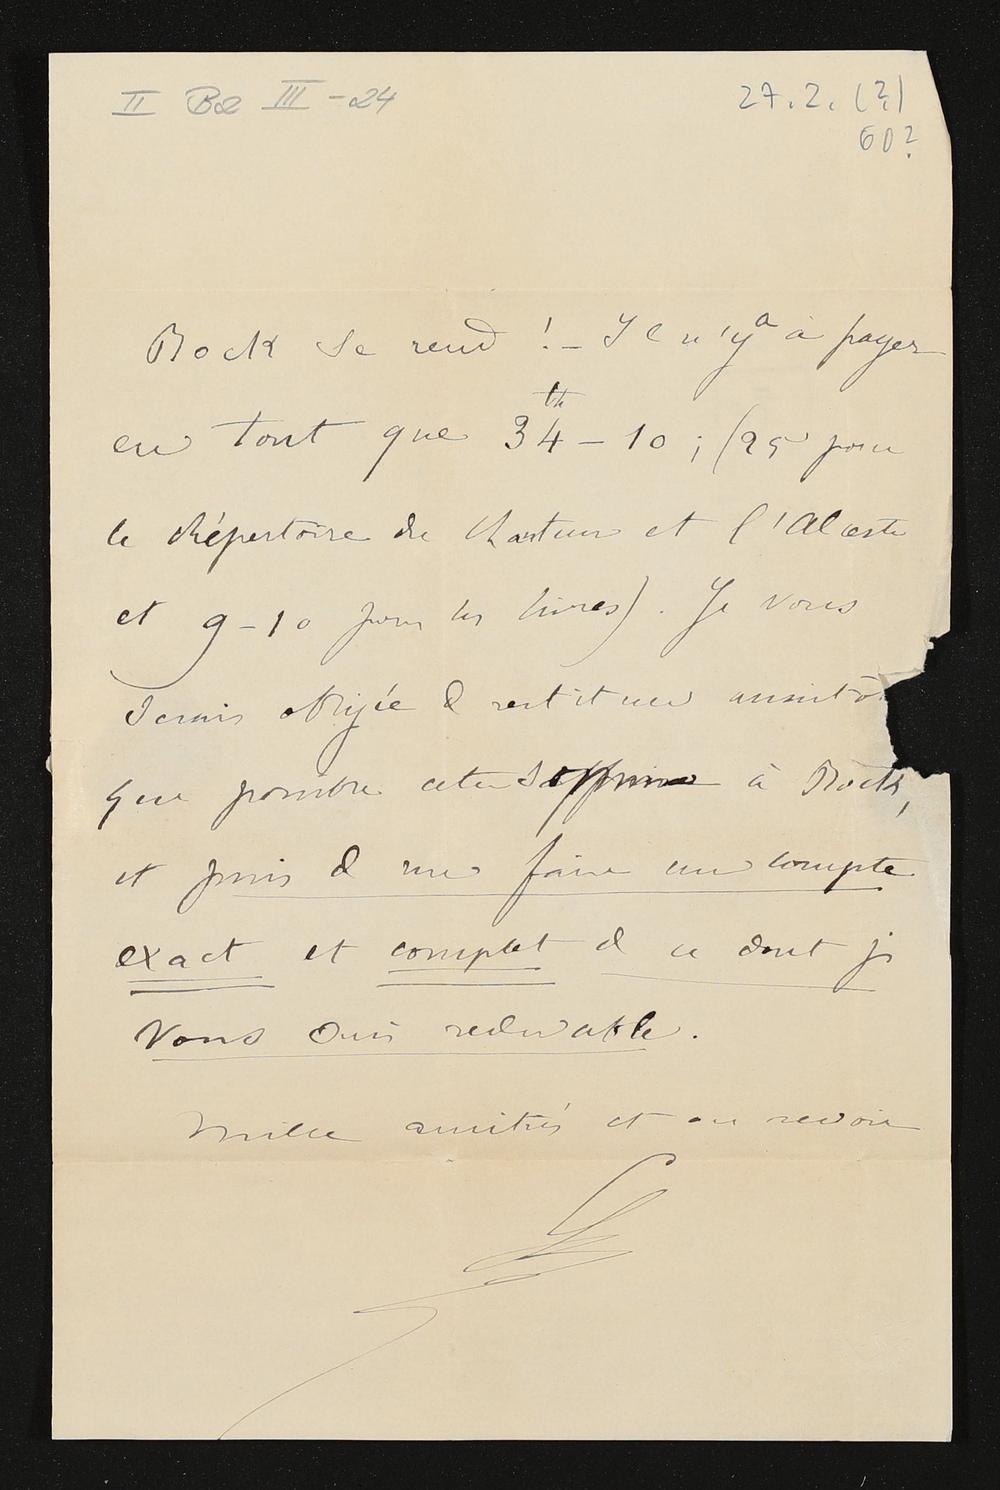 II Bd III - 24
27.2. (?)
60?
Bock se rend ! – Il n'y a à payer
en tout que 34 th – 10 ; (25 pour
le Répertoire du Chanteur et l'Alceste
et 9 – 10 pour les livres). Je vous
serais obligée de restituer aussitôt
que possible cette somme à Bock,
et puis de me faire un compte
exact et complet de ce dont je
vous suis redevable.
Mille amitiés et au revoir